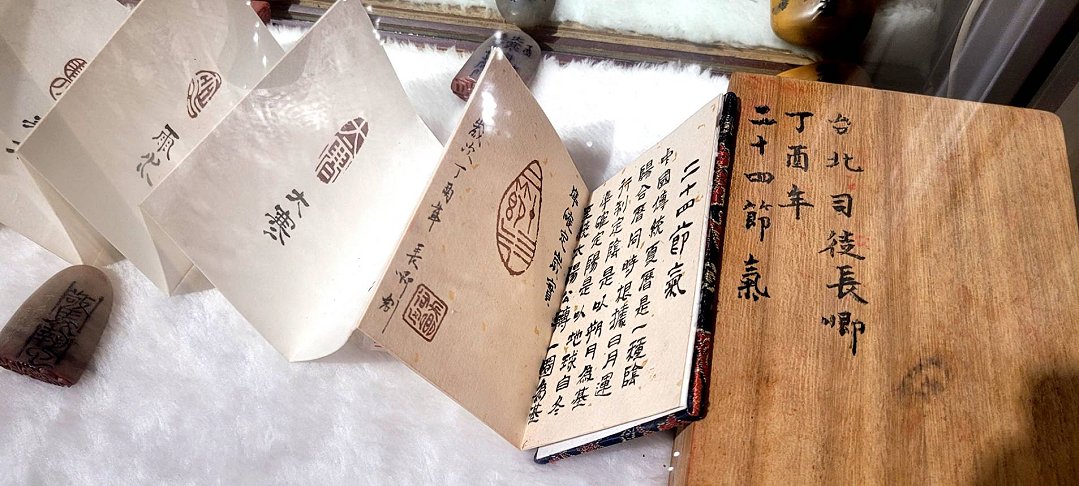 台北司徒長唧
丁酉年
二十四節氣
二十四節氣
中國傳統夏曆是一種陰
陽合曆同時根據日月運
行制定陰是以朔月為基
準確定陽是以地球自冬
至繞太陽公轉一圈為基
準確定
歲次丁酉年
大寒
雨水